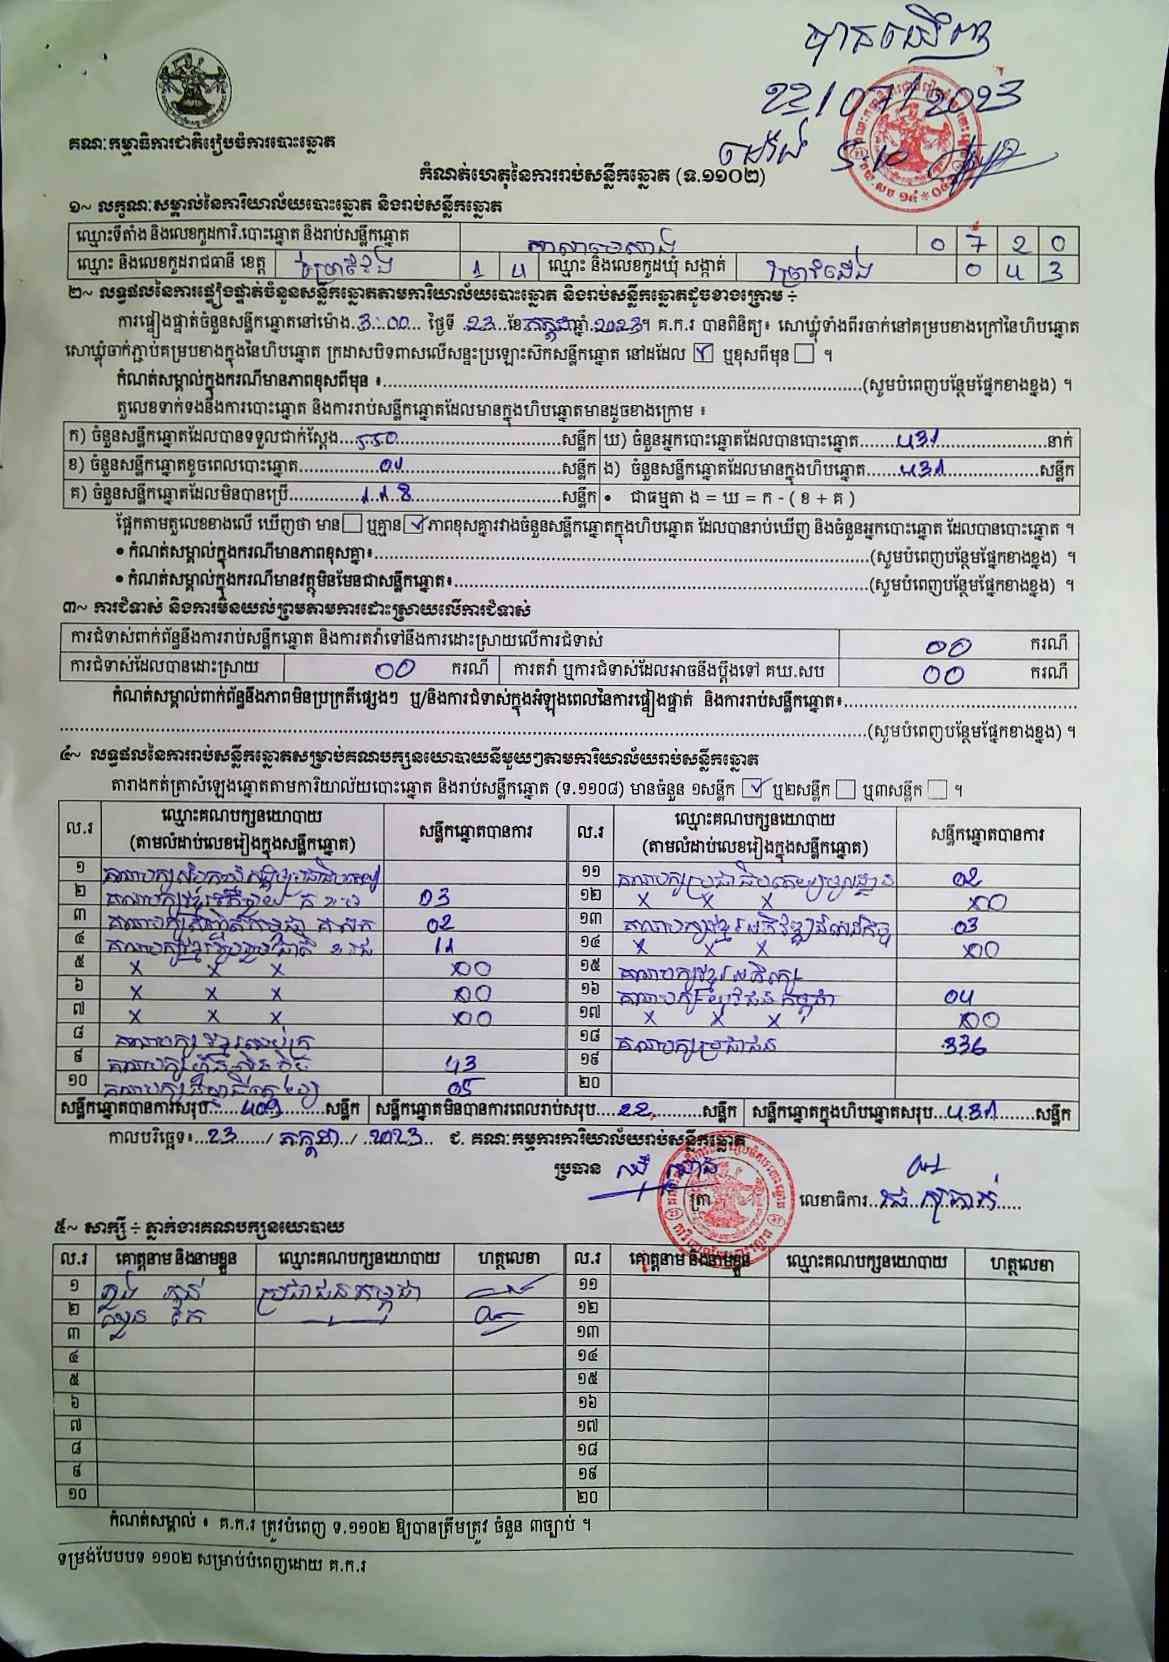 បានឃើញ
22/07/2023
ម៉ោង 5 10
គណៈកម្មាធិការជាតិរៀបចំការបោះឆ្នោត
កំណត់ហេតុនៃការរាប់សន្លឹកឆ្នោត (ទ.១១០២)
១~ លក្ខណៈសម្គាល់នៃការិយាល័យបោះឆ្នោត និងរាប់សន្លឹកឆ្នោត
ឈ្មោះទីតាំង និងលេខកូដការិ.បោះឆ្នោត និងរាប់សន្លឹកឆ្នោត 0 7 2 0
ឈ្មោះ និងលេខកូដរាជធានី ខេត្ត ព្រៃវែង 1 4 ឈ្មោះ និងលេខកូដឃុំ សង្កាត់ 0 4 3
២~ លទ្ធផលនៃការផ្ទៀងផ្ទាត់ចំនួនសន្លឹកឆ្នោតតាមការិយាល័យបោះឆ្នោត និងរាប់សន្លឹកឆ្នោតដូចខាងក្រោម ÷
ការផ្ទៀងផ្ទាត់ចំនួនសន្លឹកឆ្នោតនៅម៉ោង.3:00... ថ្ងៃទី .23...ខែកក្កដាឆ្នាំ.2023។ គ.ក.រ បានពិនិត្យ៖ សោឃ្លុំទាំងពីរចាក់នៅគម្របខាងក្រៅនៃហិបឆ្នោត
សោឃ្លុំចាក់ភ្ជាប់គម្របខាងក្នុងនៃហិបឆ្នោត ក្រដាសបិទពាសលើសន្ទះប្រឡោះស៊កសន្លឹកឆ្នោត នៅដដែល ☑ ឬខុសពីមុន ☐ ។
កំណត់សម្គាល់ក្នុងករណីមានភាពខុសពីមុន ៖......(សូមបំពេញបន្ថែមផ្នែកខាងខ្នង) ។
តួលេខទាក់ទងនឹងការបោះឆ្នោត និងការរាប់សន្លឹកឆ្នោតដែលមានក្នុងហិបឆ្នោតមានដូចខាងក្រោម ៖
ក) ចំនួនសន្លឹកឆ្នោតដែលបានទទួលជាក់ស្តែង...550......សន្លឹក ឃ) ចំនួនអ្នកបោះឆ្នោតដែលបានបោះឆ្នោត......431......នាក់
ខ) ចំនួនសន្លឹកឆ្នោតខូចពេលបោះឆ្នោត......01......សន្លឹក ង) ចំនួនសន្លឹកឆ្នោតដែលមានក្នុងហិបឆ្នោត......431......សន្លឹក
គ) ចំនួនសន្លឹកឆ្នោតដែលមិនបានប្រើ......118......សន្លឹក • ជាធម្មតា ង = ឃ = ក - ( ខ + គ )
ផ្អែកតាមតួលេខខាងលើ ឃើញថា មាន ☐ ឬគ្មាន ☑ ភាពខុសគ្នារវាងចំនួនសន្លឹកឆ្នោតក្នុងហិបឆ្នោត ដែលបានរាប់ឃើញ និងចំនួនអ្នកបោះឆ្នោត ដែលបានបោះឆ្នោត ។
• កំណត់សម្គាល់ក្នុងករណីមានភាពខុសគ្នា៖......(សូមបំពេញបន្ថែមផ្នែកខាងខ្នង) ។
• កំណត់សម្គាល់ក្នុងករណីមានវត្ថុមិនមែនជាសន្លឹកឆ្នោត៖......(សូមបំពេញបន្ថែមផ្នែកខាងខ្នង) ។
៣~ ការជំទាស់ និងការមិនយល់ព្រមតាមការដោះស្រាយលើការជំទាស់
ការជំទាស់ពាក់ព័ន្ធនឹងការរាប់សន្លឹកឆ្នោត និងការតវ៉ាទៅនឹងការដោះស្រាយលើការជំទាស់ 00 ករណី
ការជំទាស់ដែលបានដោះស្រាយ 00 ករណី ការតវ៉ា ឬការជំទាស់ដែលអាចនឹងប្តឹងទៅ គឃ.សប 00 ករណី
កំណត់សម្គាល់ពាក់ព័ន្ធនឹងភាពមិនប្រក្រតីផ្សេងៗ ឬ/និងការជំទាស់ក្នុងអំឡុងពេលនៃការផ្ទៀងផ្ទាត់ និងការរាប់សន្លឹកឆ្នោត៖......
......(សូមបំពេញបន្ថែមផ្នែកខាងខ្នង) ។
៤~ លទ្ធផលនៃការរាប់សន្លឹកឆ្នោតសម្រាប់គណបក្សនយោបាយនីមួយៗតាមការិយាល័យរាប់សន្លឹកឆ្នោត
តារាងកត់ត្រាសំឡេងឆ្នោតតាមការិយាល័យបោះឆ្នោត និងរាប់សន្លឹកឆ្នោត (ទ.១១០៨) មានចំនួន ១សន្លឹក ☑ ឬ២សន្លឹក ☐ ឬ៣សន្លឹក ☐ ។
ល.រ ឈ្មោះគណបក្សនយោបាយ (តាមលំដាប់លេខរៀងក្នុងសន្លឹកឆ្នោត) សន្លឹកឆ្នោតបានការ ល.រ ឈ្មោះគណបក្សនយោបាយ (តាមលំដាប់លេខរៀងក្នុងសន្លឹកឆ្នោត) សន្លឹកឆ្នោតបានការ
១ ១១ គណបក្សប្រជាធិបតេយ្យមូលដ្ឋាន 02
២ 03 ១២ x x x 00
៣ 02 ១៣ គណបក្សខ្មែរអភិវឌ្ឍន៍សេដ្ឋកិច្ច 03
៤ គណបក្សខ្មែររួបរួមជាតិ 11 ១៤ x x x 00
៥ x x x 00 ១៥ គណបក្សខ្មែរអភិរក្ស
៦ x x x 00 ១៦ គណបក្សយុវជនកម្ពុជា 04
៧ x x x 00 ១៧ x x x 00
៨ គណបក្ស ១៨ គណបក្សប្រជាជន 336
៩ គណបក្សហ៊្វុនស៊ិនប៉ិច 43 ១៩
១០ 05 ២០
សន្លឹកឆ្នោតបានការសរុប......409......សន្លឹក សន្លឹកឆ្នោតមិនបានការពេលរាប់សរុប....22......សន្លឹក សន្លឹកឆ្នោតក្នុងហិបឆ្នោតសរុប...431......សន្លឹក
កាលបរិច្ឆេទ៖..23....../ កក្កដា../..2023.. ជ. គណៈកម្មការការិយាល័យរាប់សន្លឹកឆ្នោត
ប្រធាន ត្រា លេខាធិការ
៥~ សាក្សី ÷ ភ្នាក់ងារគណបក្សនយោបាយ
ល.រ គោត្តនាម និងនាមខ្លួន ឈ្មោះគណបក្សនយោបាយ ហត្ថលេខា ល.រ គោត្តនាម និងនាមខ្លួន ឈ្មោះគណបក្សនយោបាយ ហត្ថលេខា
១ ប្រជាជនកម្ពុជា ១១
២ ១២
៣ ១៣
៤ ១៤
៥ ១៥
៦ ១៦
៧ ១៧
៨ ១៨
៩ ១៩
១០ ២០
កំណត់សម្គាល់ ៖ គ.ក.រ ត្រូវបំពេញ ទ.១១០២ ឱ្យបានត្រឹមត្រូវ ចំនួន ៣ច្បាប់ ។
ទម្រង់បែបបទ ១១០២ សម្រាប់បំពេញដោយ គ.ក.រ